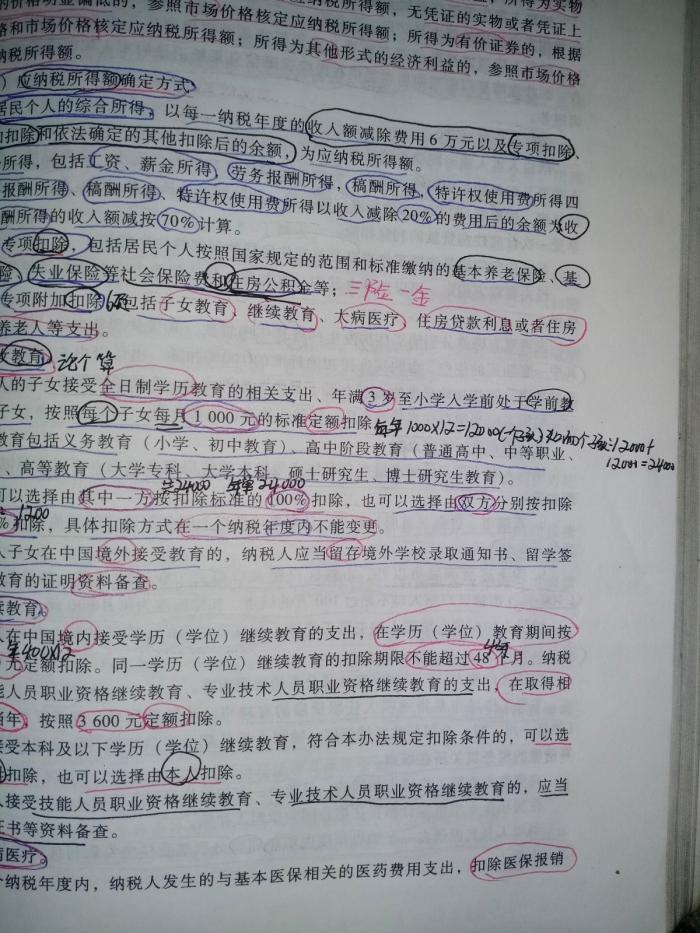 的价格明显偏低的，参照市场价格核定应纳税所得额
纳税所得额，无凭证的实物或者凭证上
格和市场价格核定应纳税所得额；所得为有价证券的，根据
纳税所得额；所得为其他形式的经济利益的，参照市场价格
纳税所得额。
）应纳税所得额确定方式
居民个人的综合所得，以每一纳税年度的收入额减除费用6万元以及专项扣除、
加扣除和依法确定的其他扣除后的余额，为应纳税所得额。
所得，包括工资、薪金所得，劳务报酬所得，稿酬所得，特许权使用费所得四
报酬所得、稿酬所得、特许权使用费所得以收入减除20%的费用后的余额为收
酬所得的收入额减按70%计算。
专项扣除，包括居民个人按照国家规定的范围和标准缴纳的基本养老保险、基
险、失业保险等社会保险费和住房公积金等； 三险一金
专项附加扣除 包括子女教育、继续教育、大病医疗、住房贷款利息或者住房
养老人等支出。
女教育 论个算
人的子女接受全日制学历教育的相关支出、年满3岁至小学入学前处于学前教
子女，按照每个子女每月1 000元的标准定额扣除
每年1000×12=12000(一个孩) 12000+
12000=24000
教育包括义务教育（小学、初中教育）、高中阶段教育（普通高中、中等职业、
、高等教育（大学专科、大学本科、硕士研究生、博士研究生教育）。
24000 每年24000
可以选择由其中一方按扣除标准的100%扣除，也可以选择由双方分别按扣除
1200
%扣除，具体扣除方式在一个纳税年度内不能变更。
人子女在中国境外接受教育的，纳税人应当留存境外学校录取通知书、留学签
教育的证明资料备查。
续教育
人在中国境内接受学历（学位）继续教育的支出，在学历（学位）教育期间按
400×12 4年
元定额扣除。同一学历（学位）继续教育的扣除期限不能超过48个月。纳税
能人员职业资格继续教育、专业技术人员职业资格继续教育的支出，在取得相
当年，按照3 600元定额扣除。
接受本科及以下学历（学位）继续教育，符合本办法规定扣除条件的，可以选
扣除，也可以选择由本人扣除。
人接受技能人员职业资格继续教育、专业技术人员职业资格继续教育的，应当
证书等资料备查。
病医疗
个纳税年度内，纳税人发生的与基本医保相关的医药费用支出，扣除医保报销